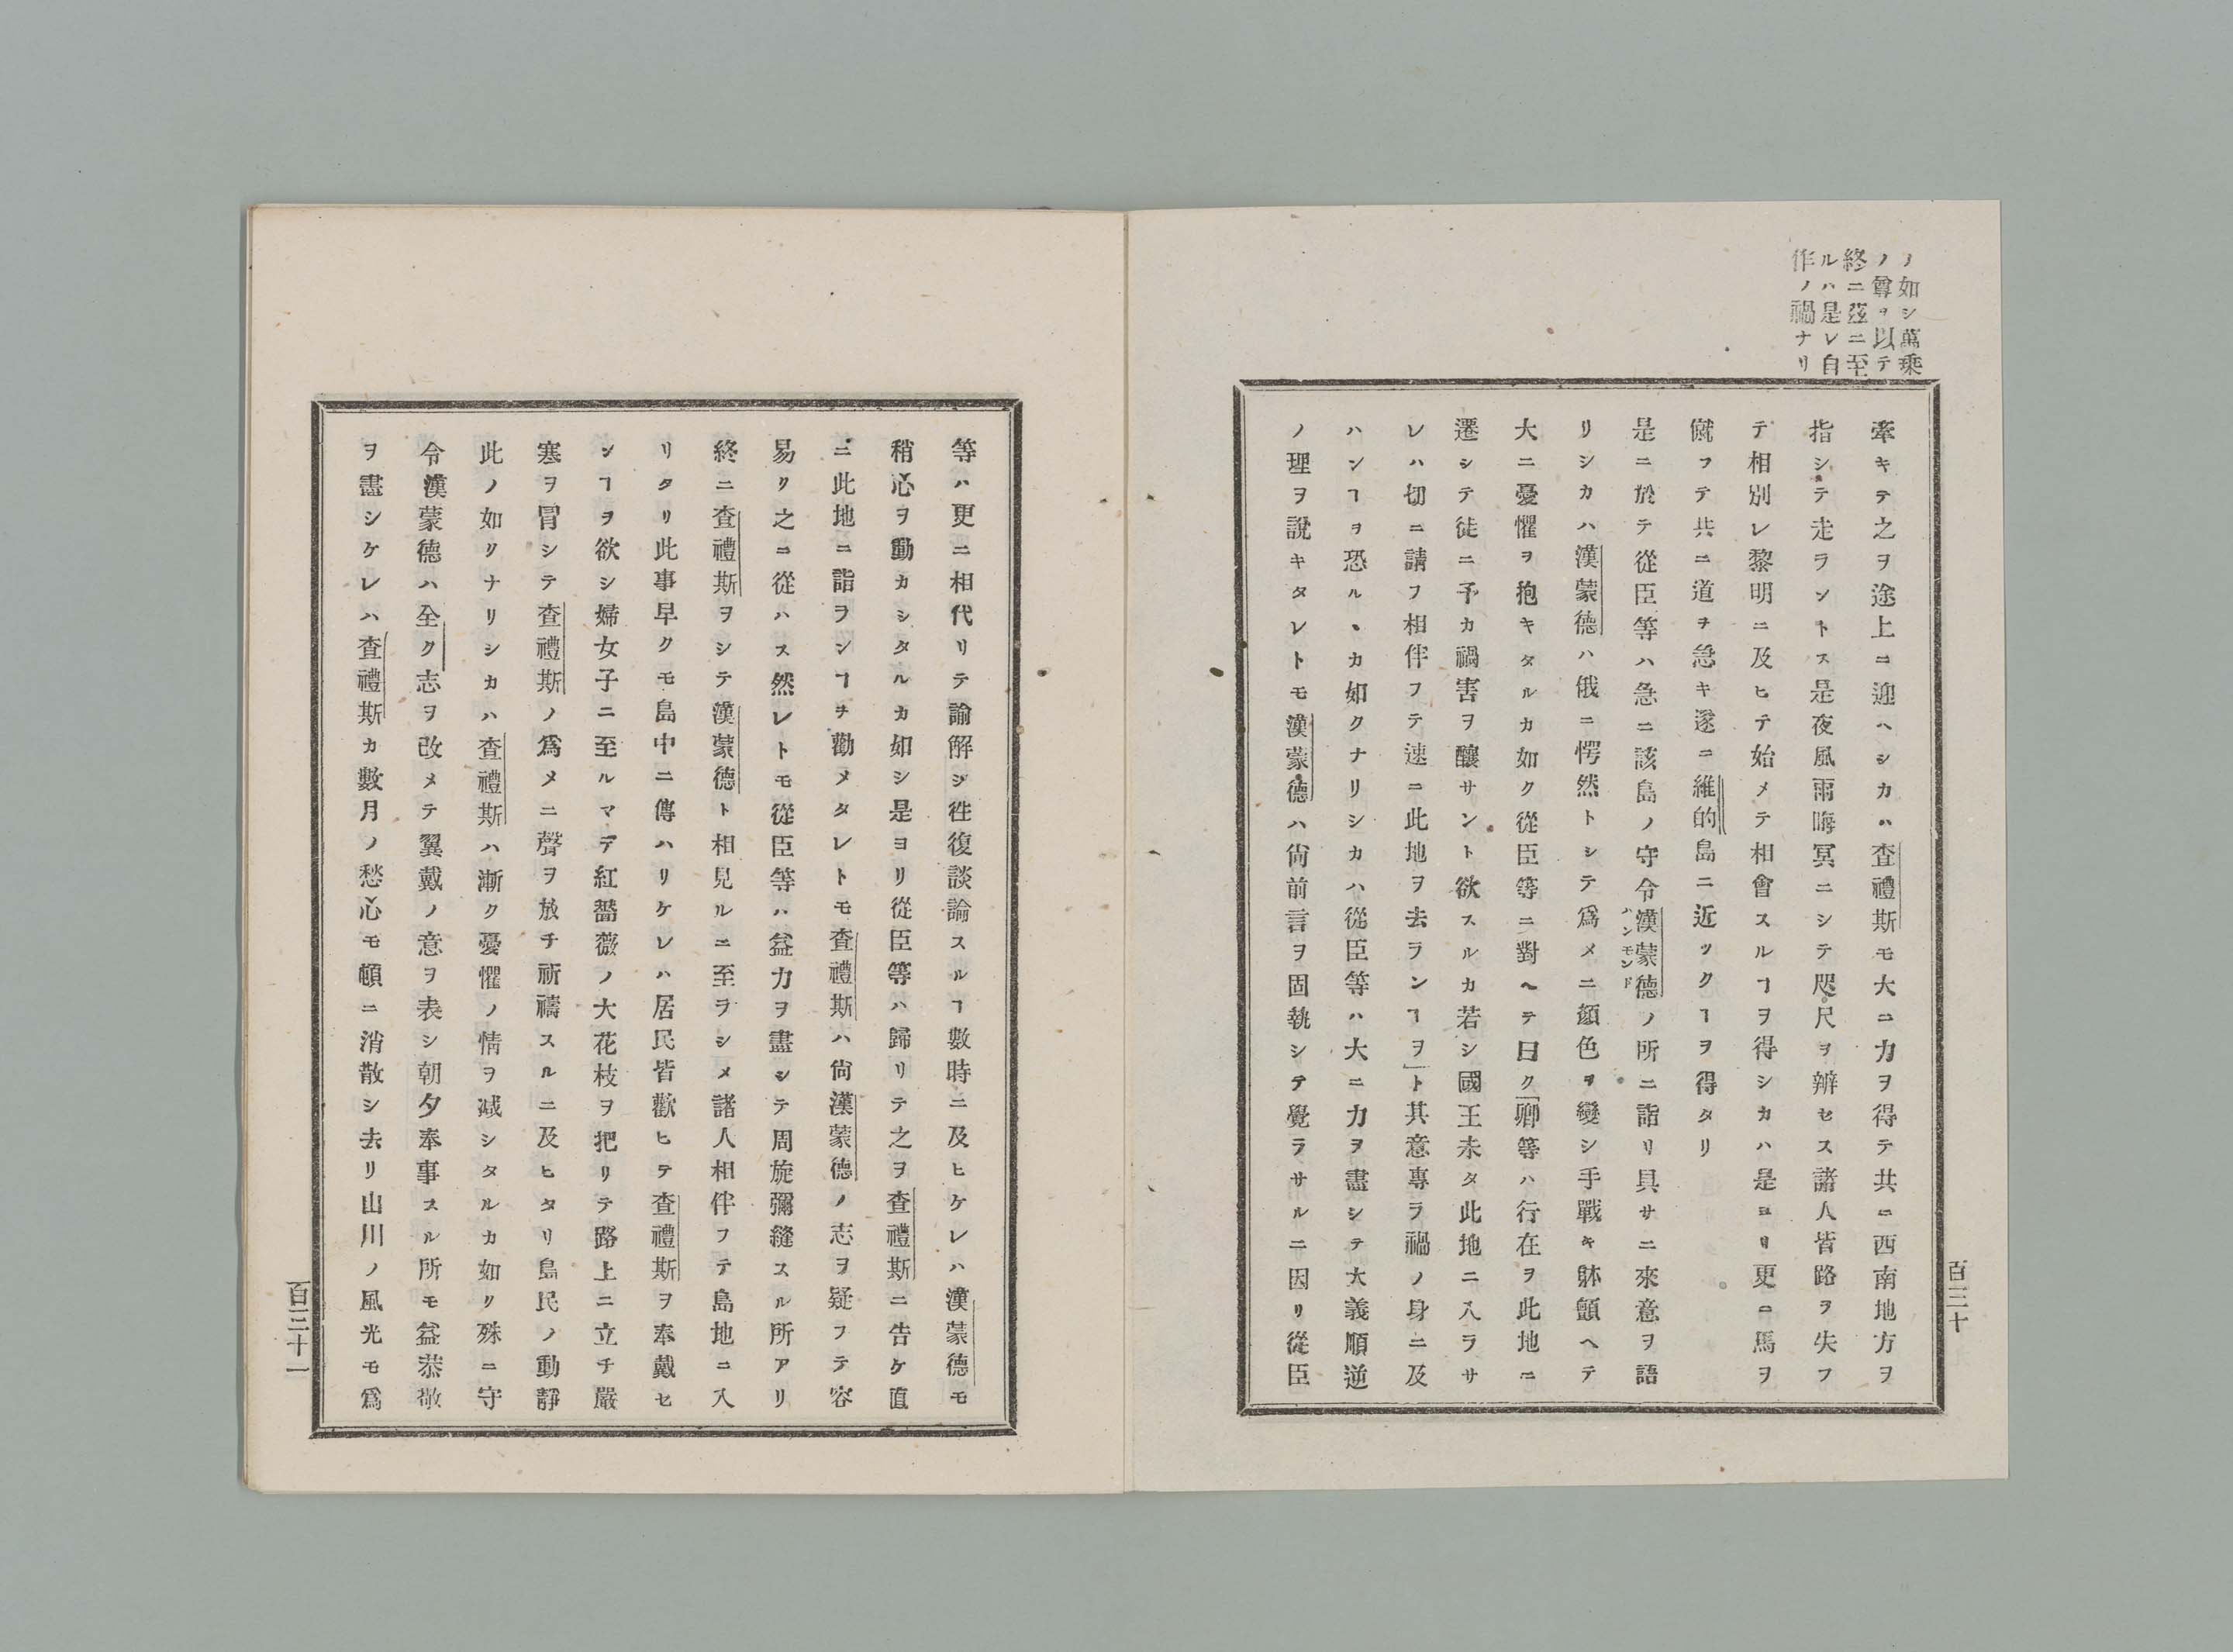 ノ如シ萬乘
ノ尊ヲ以テ
終ニ茲ニ至
ルハ是レ自
作ノ禍ナリ
牽キテ之ヲ途上ニ迎ヘシカハ査禮斯モ大ニ力ヲ得テ共ニ西南地方ヲ
指シテ走ラントス是夜風雨晦冥ニシテ咫尺ヲ辨セス諸人皆路ヲ失フ
テ相別レ黎明ニ及ヒテ始メテ相會スルヿヲ得シカハ是ヨリ更ニ馬ヲ
僦フテ共ニ道ヲ急キ遂ニ維的島ニ近ツクヿヲ得タリ
是ニ於テ從臣等ハ急ニ該島ノ守令漢蒙德ノ所ニ詣リ具サニ來意ヲ語
ハンモンド
リシカハ漢蒙德ハ俄ニ愕然トシテ爲メニ顏色ヲ變シ手戰キ躰顫ヘテ
大ニ憂懼ヲ抱キタルカ如ク從臣等ニ對ヘテ曰ク「卿等ハ行在ヲ此地ニ
遷シテ徒ニ予カ禍害ヲ釀サント欲スルカ若シ國王未タ此地ニ入ラサ
レハ切ニ請フ相伴フテ速ニ此地ヲ去ランヿヲ」ト其意專ラ禍ノ身ニ及
ハンヿヲ恐ルヽカ如クナリシカハ從臣等ハ大ニ力ヲ盡シテ大義順逆
ノ理ヲ說キタレトモ漢蒙德ハ尙前言ヲ固執シテ覺ラサルニ因リ從臣
百三十
等ハ更ニ相代リテ諭解シ徃復談論スルヿ數時ニ及ヒケレハ漢蒙德モ
稍心ヲ動カシタルカ如シ是ヨリ從臣等ハ歸リテ之ヲ査禮斯ニ告ケ直
ニ此地ニ詣ランヿヲ勸メタレトモ査禮斯ハ尙漢蒙德ノ志ヲ疑フテ容
易リ之ニ從ハス然レトモ從臣等ハ益力ヲ盡シテ周旋彌縫スル所アリ
終ニ査禮斯ヲシテ漢蒙德ト相見ルニ至ラシメ諸人相伴フテ島地ニ入
リタリ此事早クモ島中ニ傳ハリケレハ居民皆歡ヒテ査禮斯ヲ奉戴セ
ンヿヲ欲シ婦女子ニ至ルマデ紅薔薇ノ大花枝ヲ把リテ路上ニ立チ嚴
寒ヲ冒シテ査禮斯ノ爲メニ聲ヲ放チ祈禱スルニ及ヒタリ島民ノ動靜
此ノ如リナリシカハ査禮斯ハ漸ク憂懼ノ情ヲ减シタルカ如リ殊ニ守
令漢蒙德ハ全ク志ヲ改メテ翼戴ノ意ヲ表シ朝夕奉事スル所モ益恭敬
ヲ盡シケレハ査禮斯カ數月ノ愁心モ頓ニ消散シ去リ山川ノ風光モ爲
百三十一